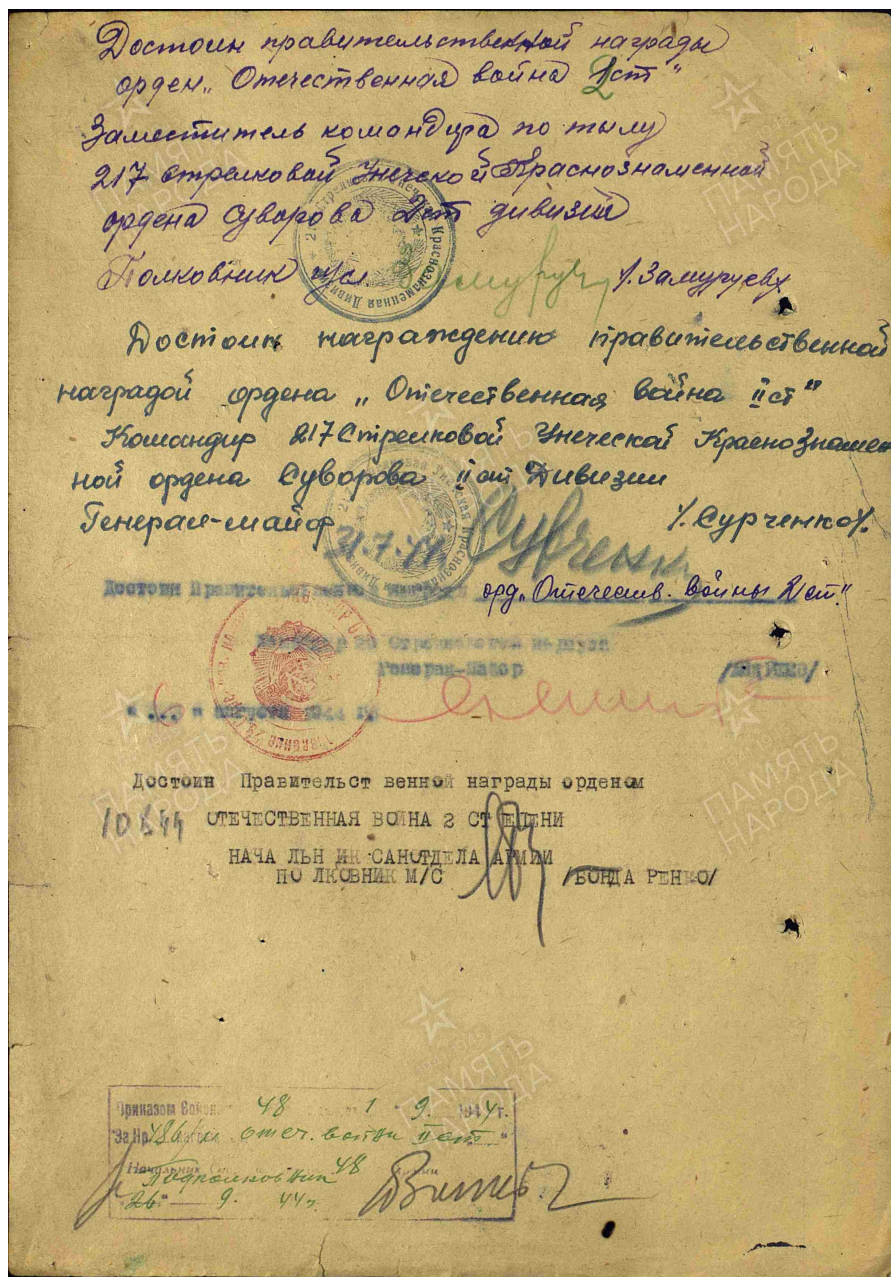 Достоин правительственной награды
орден „ Отечественная война 2 ст "
Заместитель командира по тылу
217 стрелковой Унечской Краснознаменной
ордена Суворова 2 ст дивизии
Полковник и/сл. /. Замуруев/
Достоин награждению правительственной
наградой ордена „ Отечественная война II ст "
Командир 217 Стрелковой Унечской КрасноЗнамен
ной ордена Суворова II ст Дивизии
Генерал-майор /. Сурченко/.
31.7.44
Достоин Правительственной орд. „Отечеств. войны 2 ст."
Стрелкового корпуса
Генерал-майор
" 6 " августа 1944 г.
Достоин Правительст венной награды орденом
10 8 44 ОТЕЧЕСТВЕННАЯ ВОЙНА 2 СТ ЕПЕНИ
НАЧА ЛЬН ИК САНОТДЕЛА АРМИИ
ПО ЛКОВНИК М/С /БОНДА РЕНКО/
Приказом Войск. 48 1 " 9. 1944 г.
За № отеч. войны II ст "
Начальник 48
Подполковник
" 26 " 9. 44 г.
ПАМЯТЬ
НАРОДА